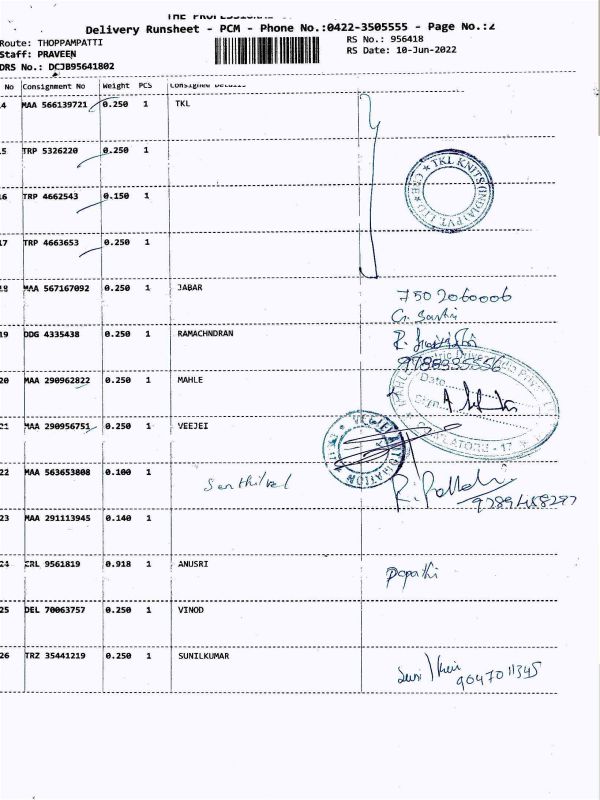 Delivery Runsheet - PCM - Phone No.:0422-3505555 - Page No.:2
Route: THOPPAMPATTI
RS No.: 956418
Staff: PRAVEEN
RS Date: 10-Jun-2022
DRS No.: DCJB95641802
No Consignment No Weight PCS Consignee Details
14 MAA 566139721 0.250 1 TKL
15 TRP 5326220 0.250 1
TKL KNITS (INDIA) PVT LTD CBE
16 TRP 4662543 0.150 1
17 TRP 4663653 0.250 1
18 MAA 567167092 0.250 1 JABAR
7502060006
19 DDG 4335438 0.250 1 RAMACHNDRAN
20 MAA 290962822 0.250 1 MAHLE
Date
Sign
21 MAA 290956751 0.250 1 VEEJEI
VEEJEI AUTOMATION
22 MAA 563653808 0.100 1
Senthilvel
9789458297
23 MAA 291113945 0.140 1
24 CRL 9561819 0.918 1 ANUSRI
papathi
25 DEL 70063757 0.250 1 VINOD
26 TRZ 35441219 0.250 1 SUNILKUMAR
9047011345